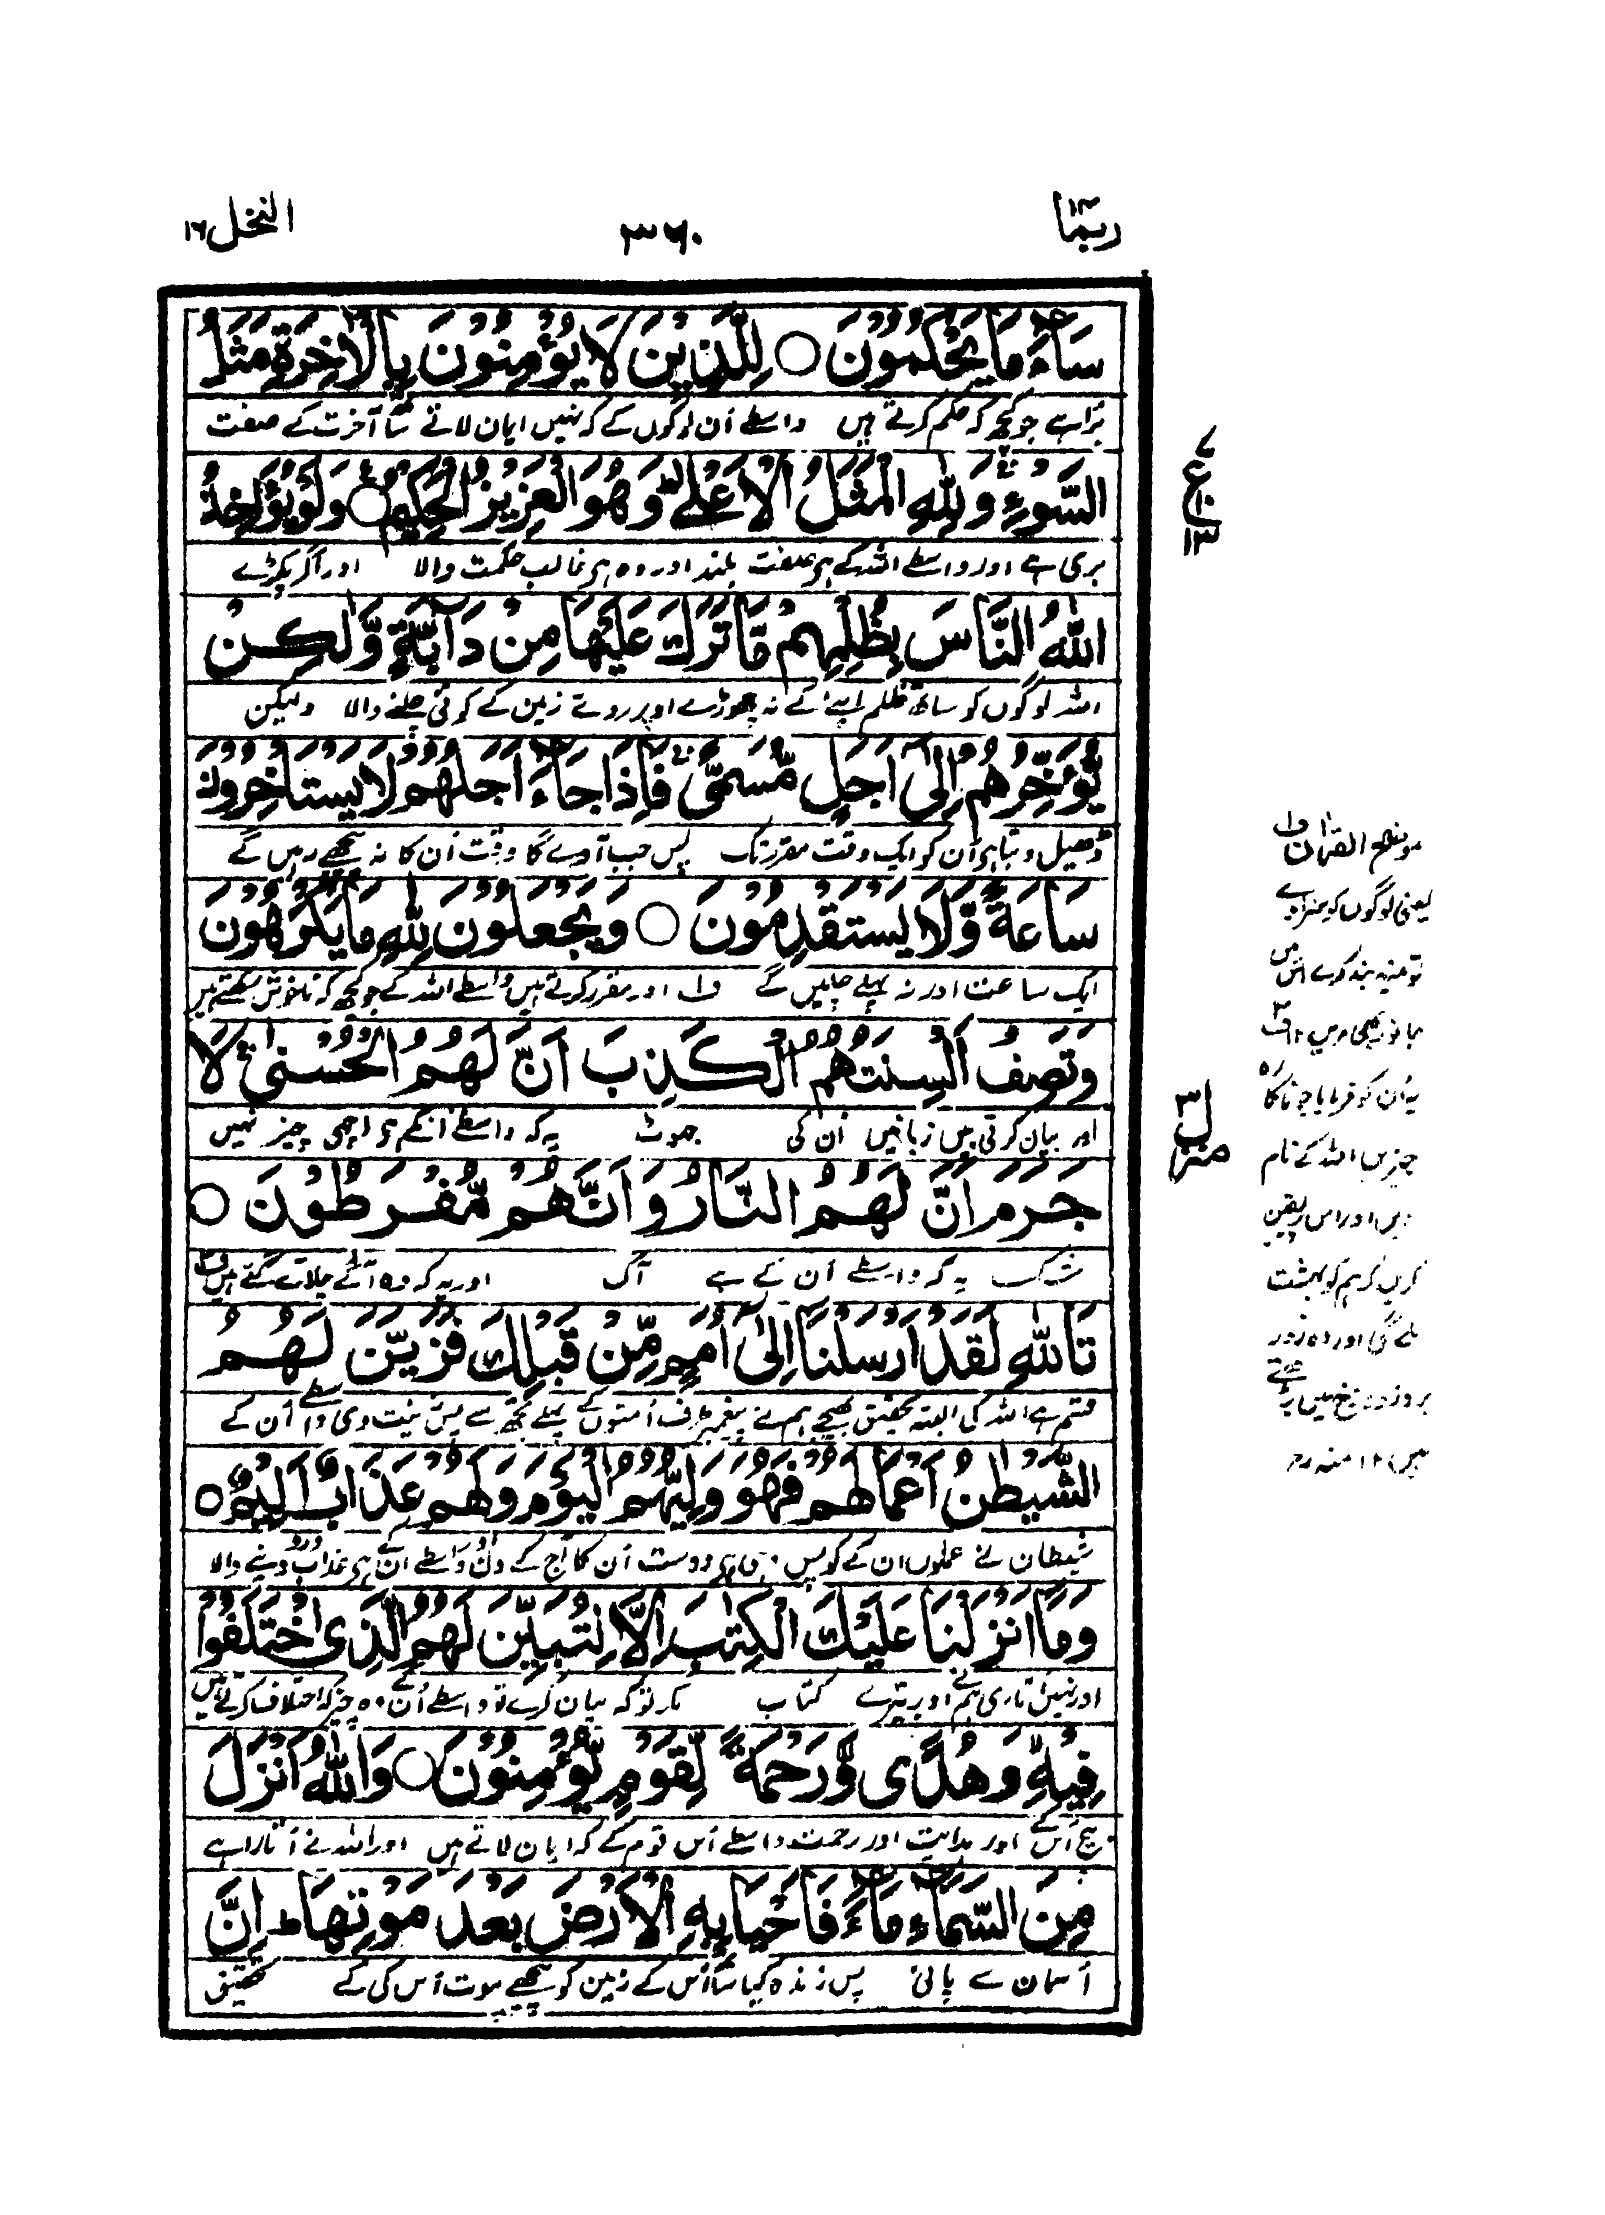 ربما ۱۴
۳۶۰
النحل ۱۶
سَآءَ مَا يَحْكُمُوْنَ ○ لِلَّذِيْنَ لَا يُؤْمِنُوْنَ بِالْاٰخِرَةِ مَثَلُ
بُرا ہے جو کچھ کہ حکم کرتے ہیں واسطے اُن لوگوں کے کہ نہیں ایمان لاتے ساتھ آخرت کے صفت
السَّوْءِ ۚ وَلِلّٰهِ الْمَثَلُ الْاَعْلٰى ؕ وَهُوَ الْعَزِيْزُ الْحَكِيْمُ ○ وَلَوْ يُؤَاخِذُ
بری ہے اور واسطے اللہ کے ہی صفت بلند اور وہ ہی غالب حکمت والا اور اگر پکڑے
اللّٰهُ النَّاسَ بِظُلْمِهِمْ مَّا تَرَكَ عَلَيْهَا مِنْ دَآبَّةٍ وَّلٰكِنْ
اللہ لوگوں کو ساتھ ظلم اپنے کے نہ چھوڑے اوپر روئے زمین کے کوئی چلنے والا ولیکن
يُّؤَخِّرُهُمْ اِلٰٓى اَجَلٍ مُّسَمًّى ۚ فَاِذَا جَآءَ اَجَلُهُمْ لَا يَسْتَاْخِرُوْنَ
ڈھیل دیتا ہی اُن کو ایک وقت مقرر تک پس جب آوے گا وقت اُن کا نہ پیچھے رہیں گے
سَاعَةً وَّلَا يَسْتَقْدِمُوْنَ ○ وَيَجْعَلُوْنَ لِلّٰهِ مَا يَكْرَهُوْنَ
ایک ساعت اور نہ پہلے چلیں گے ف۱ اور مقرر کرتے ہیں واسطے اللہ کے جو کچھ کہ ناخوش رکھتے ہیں
وَتَصِفُ اَلْسِنَتُهُمُ الْكَذِبَ اَنَّ لَهُمُ الْحُسْنٰى ؕ لَا
اور بیان کرتی ہیں زبانیں اُن کی جھوٹ یہ کہ واسطے انکے ہی اچھی چیز نہیں
جَرَمَ اَنَّ لَهُمُ النَّارَ وَاَنَّهُمْ مُّفْرَطُوْنَ ○
شک یہ کہ واسطے اُن کے ہے آگ اور یہ کہ وہ آگے چلائے گئے ہیں ف۲
تَاللّٰهِ لَقَدْ اَرْسَلْنَآ اِلٰٓى اُمَمٍ مِّنْ قَبْلِكَ فَزَيَّنَ لَهُمُ
قسم ہے اللہ کی البتہ تحقیق بھیجے ہم نے پیغمبر طرف اُمتوں کے پہلے تجھ سے پس زینت دی واسطے اُن کے
الشَّيْطٰنُ اَعْمَالَهُمْ فَهُوَ وَلِيُّهُمُ الْيَوْمَ وَلَهُمْ عَذَابٌ اَلِيْمٌ ○
شیطان نے عملوں ان کے کو پس وہی ہی دوست اُن کا آج کے دن اور واسطے ان کے ہی عذاب درد دینے والا
وَمَآ اَنْزَلْنَا عَلَيْكَ الْكِتٰبَ اِلَّا لِتُبَيِّنَ لَهُمُ الَّذِى اخْتَلَفُوْا
اور نہیں اتاری ہم نے اوپر تیرے کتاب مگر تو کہ بیان کرے تو واسطے اُن کے وہ چیز کہ اختلاف کرتے ہیں
فِيْهِ ۙ وَهُدًى وَّرَحْمَةً لِّقَوْمٍ يُّؤْمِنُوْنَ ○ وَاللّٰهُ اَنْزَلَ
بیچ اس کے اور ہدایت اور رحمت واسطے اُس قوم کے کہ ایمان لاتے ہیں اور اللہ نے اُتارا ہے
مِنَ السَّمَآءِ مَآءً فَاَحْيَا بِهِ الْاَرْضَ بَعْدَ مَوْتِهَا ؕ اِنَّ
آسمان سے پانی پس زندہ کیا ساتھ اُس کے زمین کو پیچھے موت اُس کی کے تحقیق
ع
۱۳
منزل ۳
موضح القرآن ف۱
یعنی لوگوں کو سزا دے
تو مینہ بند کرے اس میں
جانور بھی مریں ۱۲ ف۲
یہ اُن کو فرمایا جو ناکارہ
چیزیں اللہ کے نام
دیں اور اس پر یقین
کریں کہ ہم کو بہشت
ملے گی اور وہ روز
بروز دوزخ میں بڑھتے
ہیں ۱۲ منہ رح